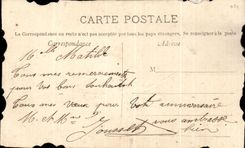 CARTE POSTALE
La Correspondance au recto n'est pas acceptée par tous les pays étrangers. Se renseigner à la poste
Correspondance Adresse
Mlle Matilde
Tous mes remerciements
pour vos bons souhaits
Tous mes vœux pour Votre anniversaire
M et Mme Jousselt vous embrasse
bien